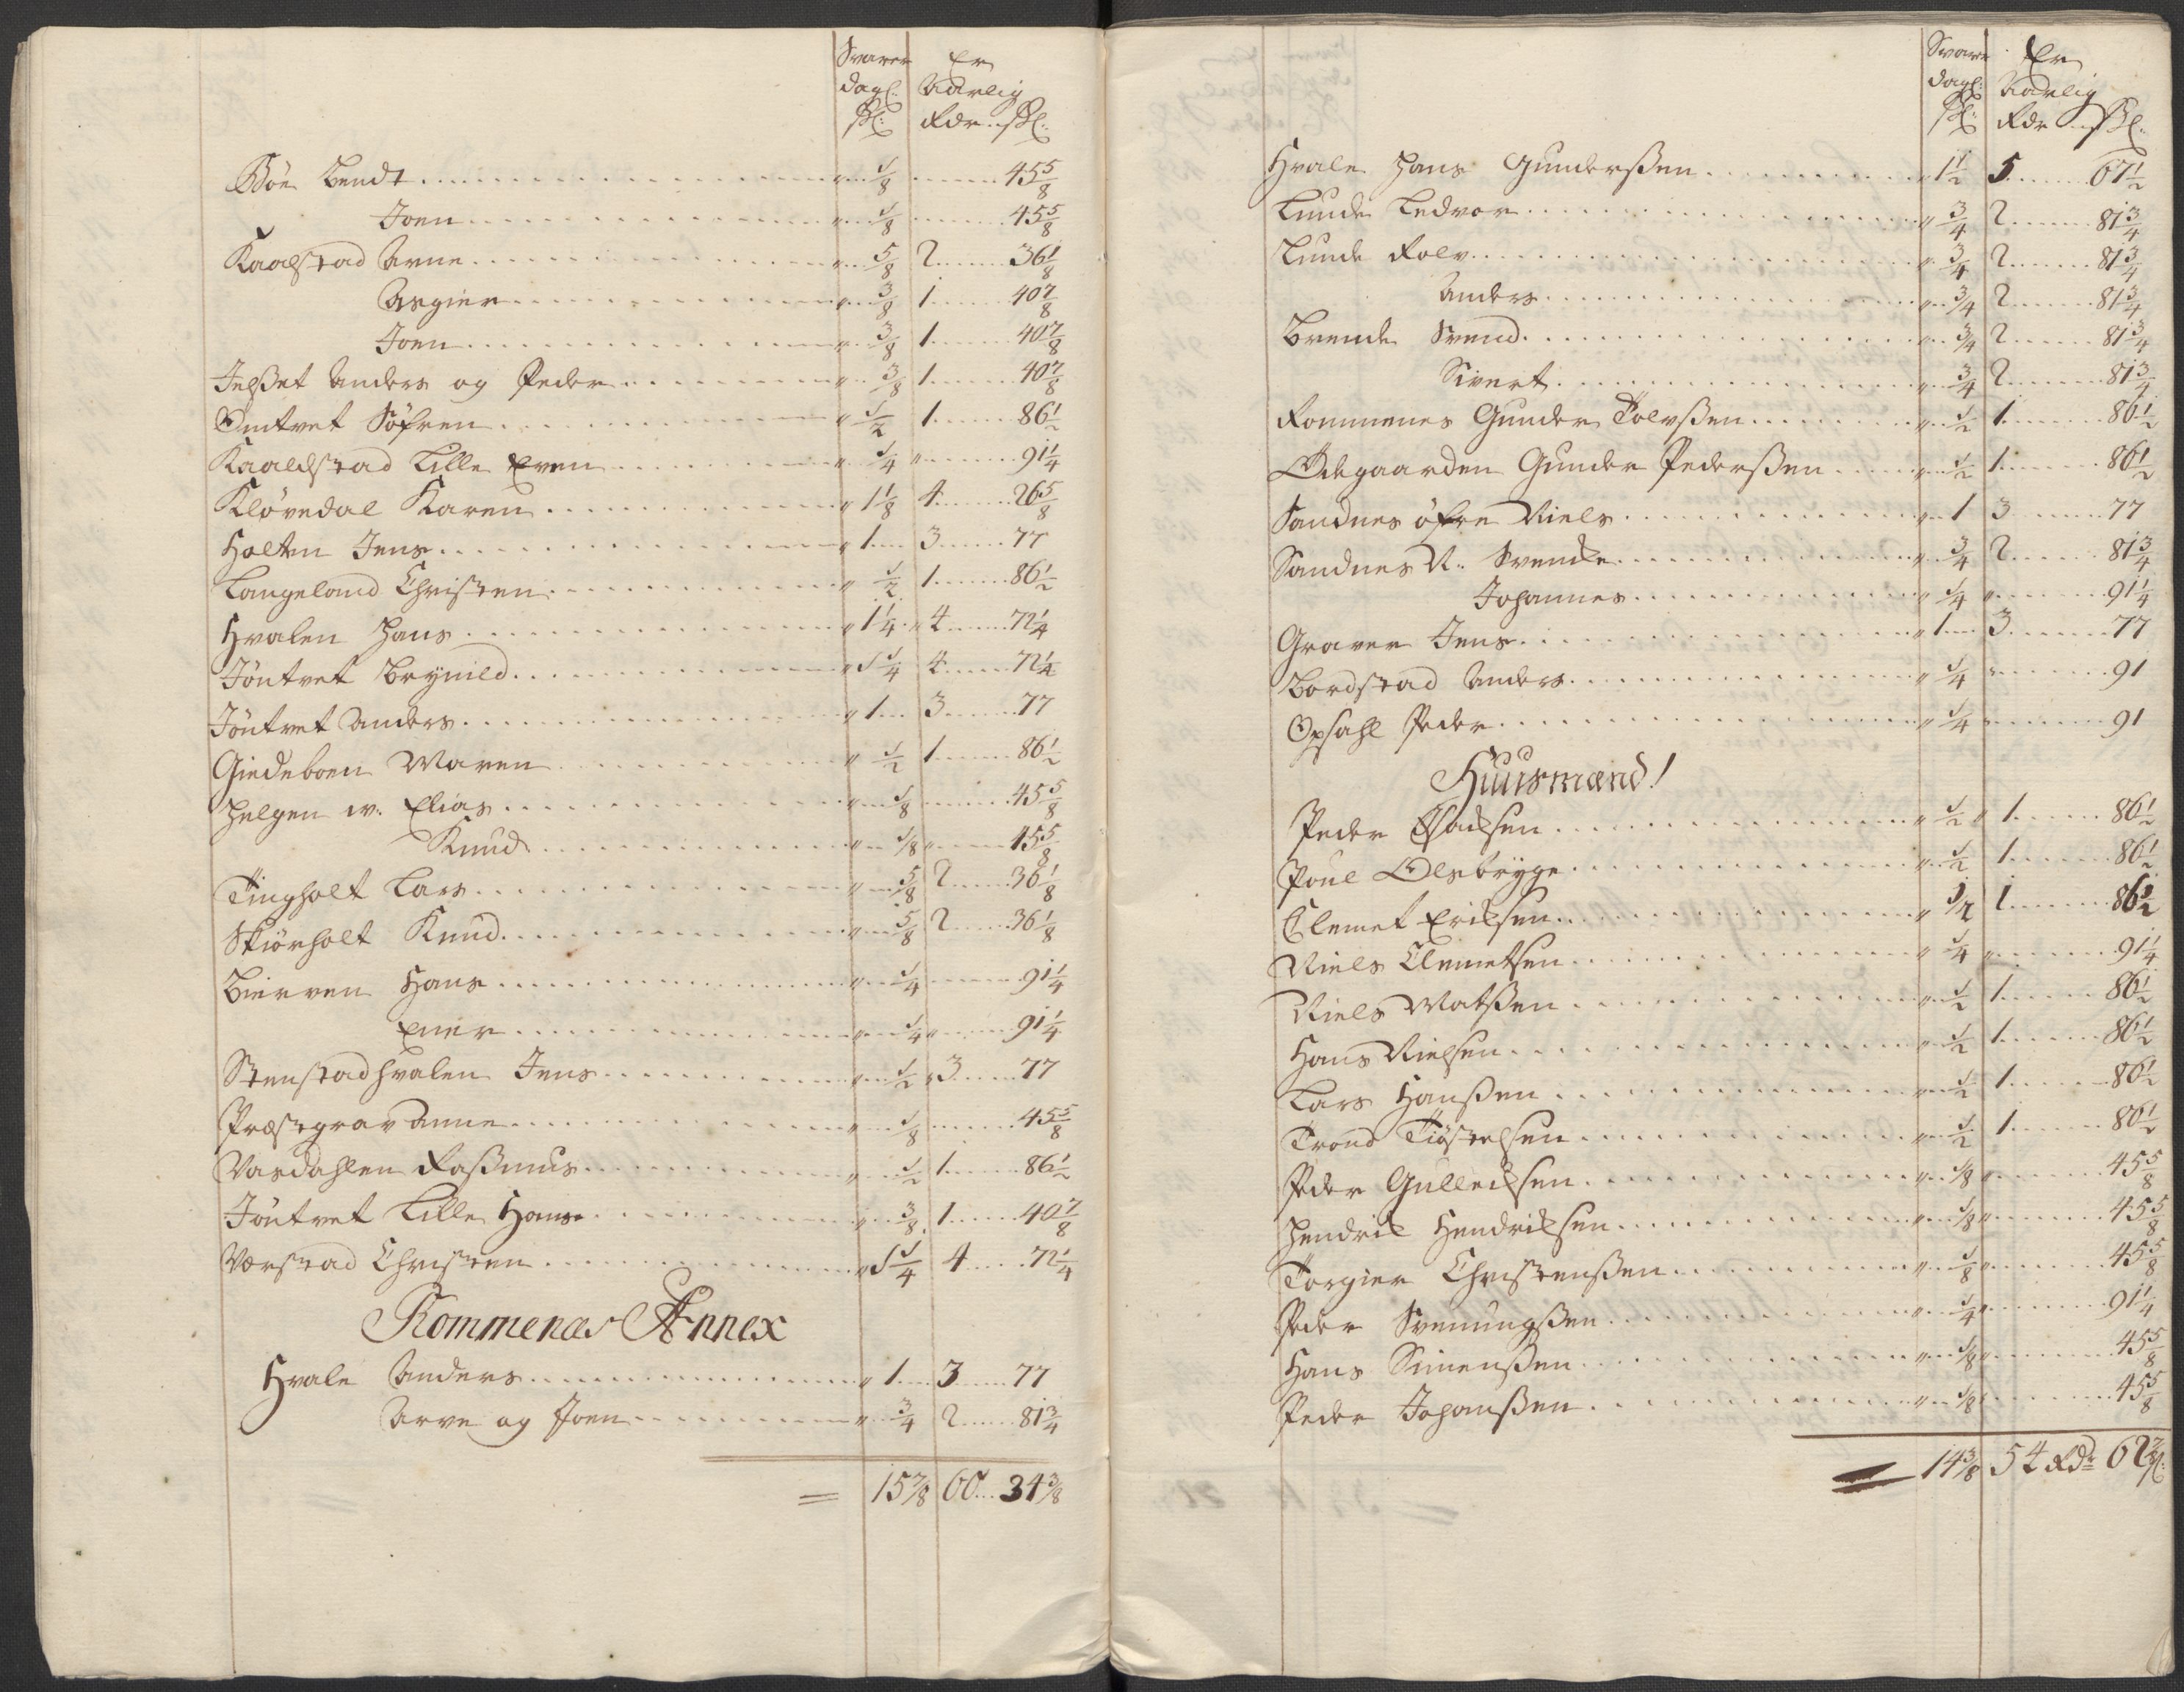 Svarer Er
dagl: Aarlig
skl: Rdr. skl:
Bøe Bendt 1/8 45 5/8
Joen 1/8 45 5/8
Kaalstad Arne 5/8 2 36 1/8
Asgier 3/8 1 40 7/8
Joen 3/8 1 40 7/8
Jelßet Anders og Peder 3/8 1 40 7/8
Omtvet Söfren 1/2 1 86 1/2
Kaalstad Lille Even 1/4 91 1/4
Klövedal Karen 1 1/8 4 26 5/8
Holten Jens 1 3 77
Langeland Christen 1/2 1 86 1/2
Hvalen Hans 1 1/4 4 72 1/4
Jöntvet Brynild 1 1/4 4 72 1/4
Jöntvet Anders 1 3 77
Giedeboen Maren 1/2 1 86 1/2
Helgen w. Elias 1/8 45 5/8
Knud 1/8 45 5/8
Tingholt Lars 5/8 2 36 1/8
Skiörholt Knud 5/8 2 36 1/8
Bierven Hans 1/4 91 1/4
Ener 1/4 91 1/4
Stenstadhvalen Jens 1/2 3 77
Præstegrav Anne 1/8 45 5/8
Vasdahlen Raßmus 1/2 1 86 1/2
Jöntvet Lille Hans 3/8 1 40 7/8
Værstad Christen 1 1/4 4 72 1/4
Rommenæs Annex
Hvale Anders 1 3 77
Arve og Joen 3/4 2 81 3/4
= 15 7/8 60 34 3/8
Svarer Er
dagl: Aarlig
skl: Rdr skl:
Hvale Hans Gunderßen 1 1/2 5 67 1/2
Lunde Ledvor 3/4 2 81 3/4
Lunde Rolv 3/4 2 81 3/4
Anders 3/4 2 81 3/4
Brende Svend 3/4 2 81 3/4
Sivert 3/4 2 81 3/4
Rommenes Gunder Tolvßen 1/2 1 86 1/2
Ödegaarden Gunder Pederßen 1/2 1 86 1/2
Sandnes öfre Niels 1 3 77
Sandnes N. Svenke 3/4 2 81 3/4
Johannes 1/4 91 1/4
Graver Jens 1 3 77
Bordstad Anders 1/4 91
Opsahl Peder 1/4 91
Huusmænd!
Peder 1/2 1 86 1/2
Poul Olsbrygge 1/2 1 86 1/2
Clemet Eriksen 1/2 1 86 1/2
Niels Clemetsen 1/4 91 1/4
Niels Matßen 1/2 1 86 1/2
Hans Nielsen 1/2 1 86 1/2
Lars Hanßen 1/2 1 86 1/2
Trond Tiöstelsen 1/2 1 86 1/2
Peder Gullecksen 1/8 45 5/8
Hendrik Hendriksen 1/8 45 5/8
Torgier Christenßen 1/8 45 5/8
Peder Svenungßen 1/4 91 1/4
Hans Simenßen 1/8 45 5/8
Peder Johanßen 1/8 45 5/8
= 14 3/8 54 Rdr 62 7/8 skl: